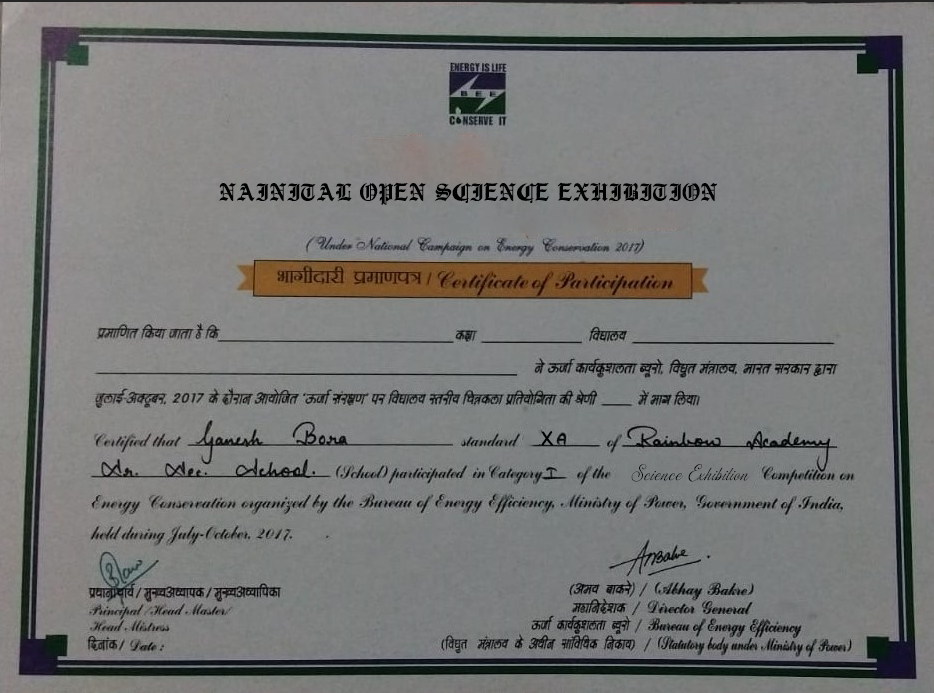 ENERGY IS LIFE
BEE
CONSERVE IT
NAINITAL OPEN SCIENCE EXHIBITION
(Under National Campaign on Energy Conservation 2017)
भागीदारी प्रमाणपत्र / Certificate of Participation
प्रमाणित किया जाता है कि कक्षा विद्यालय
ने ऊर्जा कार्यकुशलता ब्यूरो, विद्युत मंत्रालय, भारत सरकार द्वारा
जुलाई-अक्टूबर, 2017 के दौरान आयोजित 'ऊर्जा संरक्षण' पर विद्यालय स्तरीय चित्रकला प्रतियोगिता की श्रेणी ___ में भाग लिया।
Certified that Ganesh Bora standard XA of Rainbow Academy
Sr. Sec. School. (School) participated in Category I of the Science Exhibition Competition on
Energy Conservation organized by the Bureau of Energy Efficiency, Ministry of Power, Government of India,
held during July-October, 2017.
प्रधानाचार्य / मुख्यअध्यापक / मुख्यअध्यापिका
Principal /Head Master/
Head Mistress
दिनांक / Date :
ABakre
(अभय बाकरे) / (Abhay Bakre)
महानिदेशक / Director General
ऊर्जा कार्यकुशलता ब्यूरो / Bureau of Energy Efficiency
(विद्युत मंत्रालय के अधीन सांविधिक निकाय) / (Statutory body under Ministry of Power)